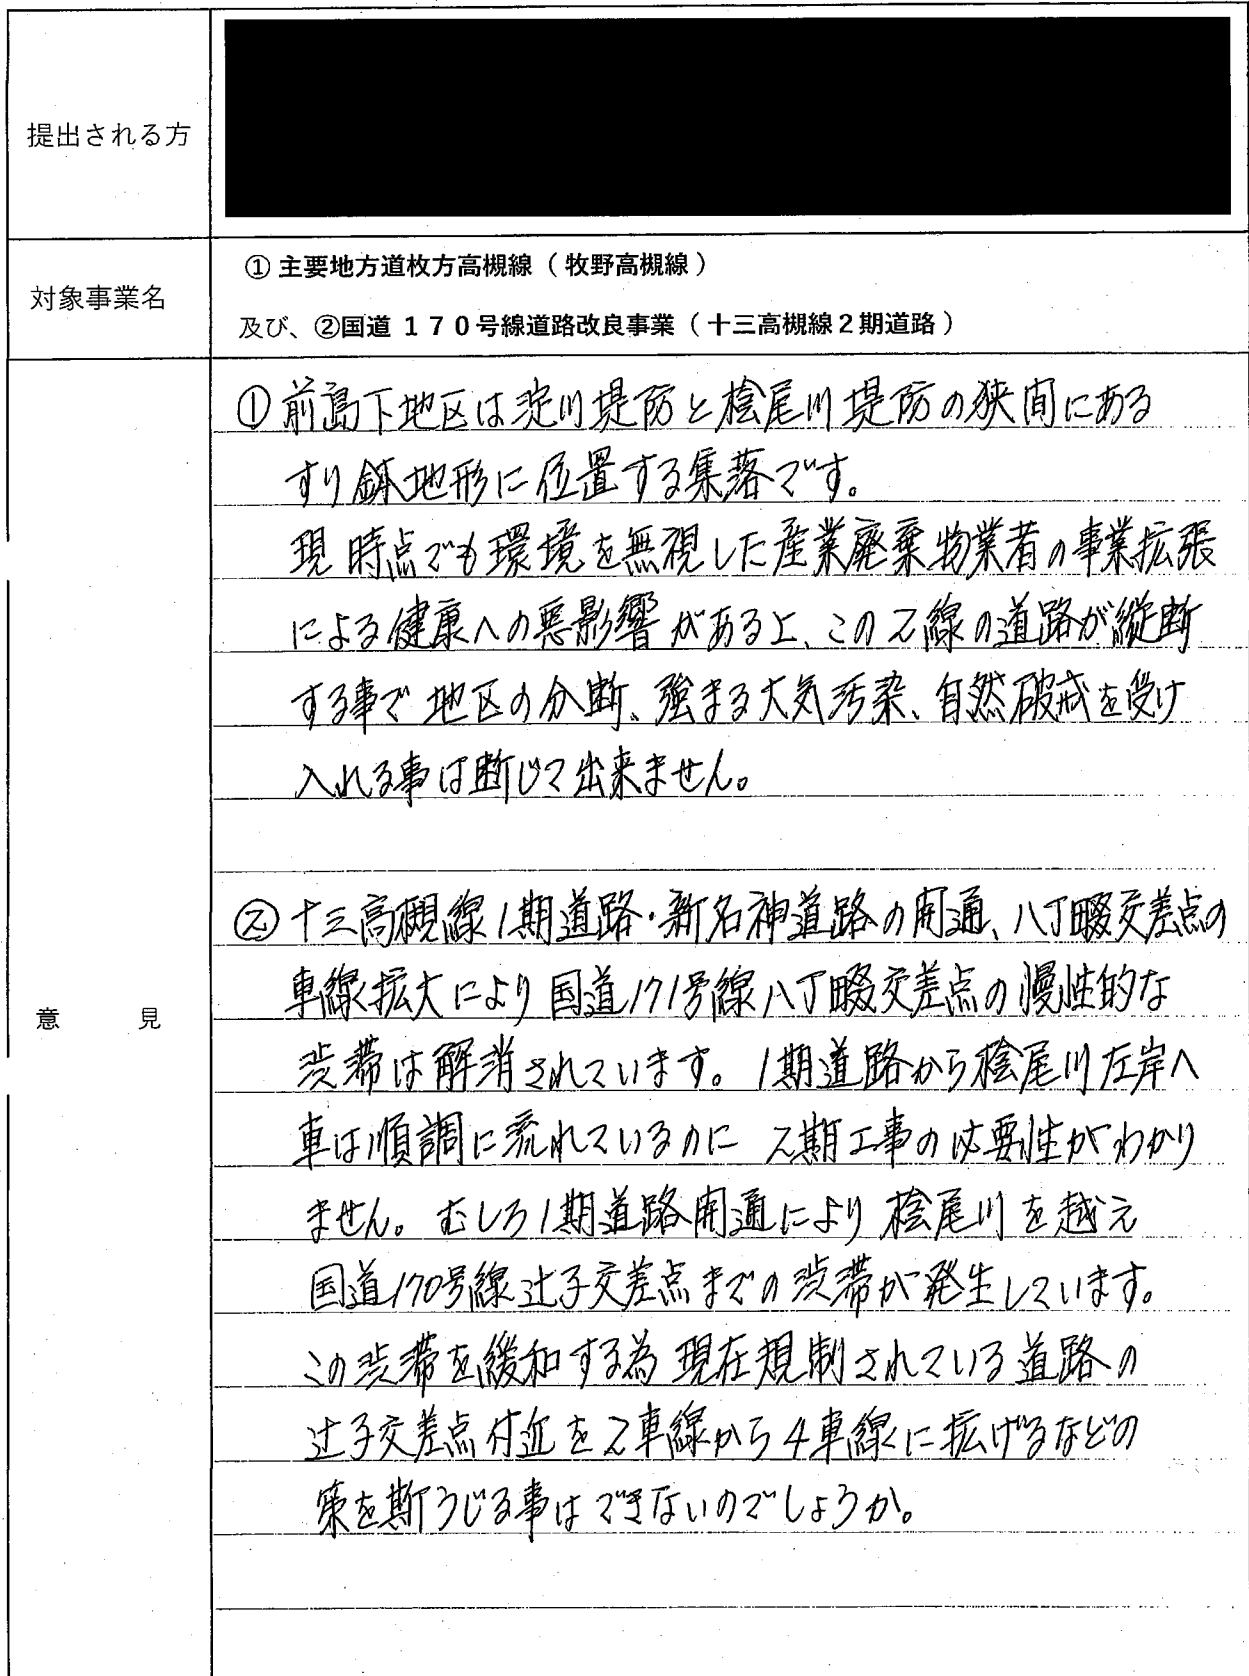 提出される方
対象事業名
① 主要地方道枚方高槻線（牧野高槻線）
及び、②国道１７０号線道路改良事業（十三高槻線２期道路）
意　見
①前島下地区は淀川堤防と桧尾川堤防の狭間にある
すり鉢地形に位置する集落です。
現時点でも環境を無視した産業廃棄物業者の事業拡張
による健康への悪影響がある上、この2線の道路が縦断
する事で地区の分断、強まる大気汚染、自然破戒を受け
入れる事は断じて出来ません。
②十三高槻線1期道路・新名神道路の開通、八丁畷交差点の
車線拡大により国道171号線八丁畷交差点の慢性的な
渋滞は解消されています。1期道路から桧尾川左岸へ
車は順調に流れているのに2期工事の必要性がわかり
ません。むしろ1期道路開通により桧尾川を越え
国道170号線辻子交差点までの渋滞が発生しています。
この渋滞を緩和する為現在規制されている道路の
辻子交差点付近を2車線から4車線に拡げるなどの
策を断うじる事はできないのでしょうか。